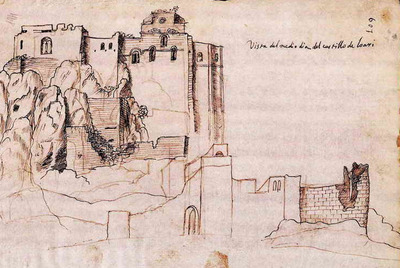 Vista del medio dia del castillo de Loarri
109